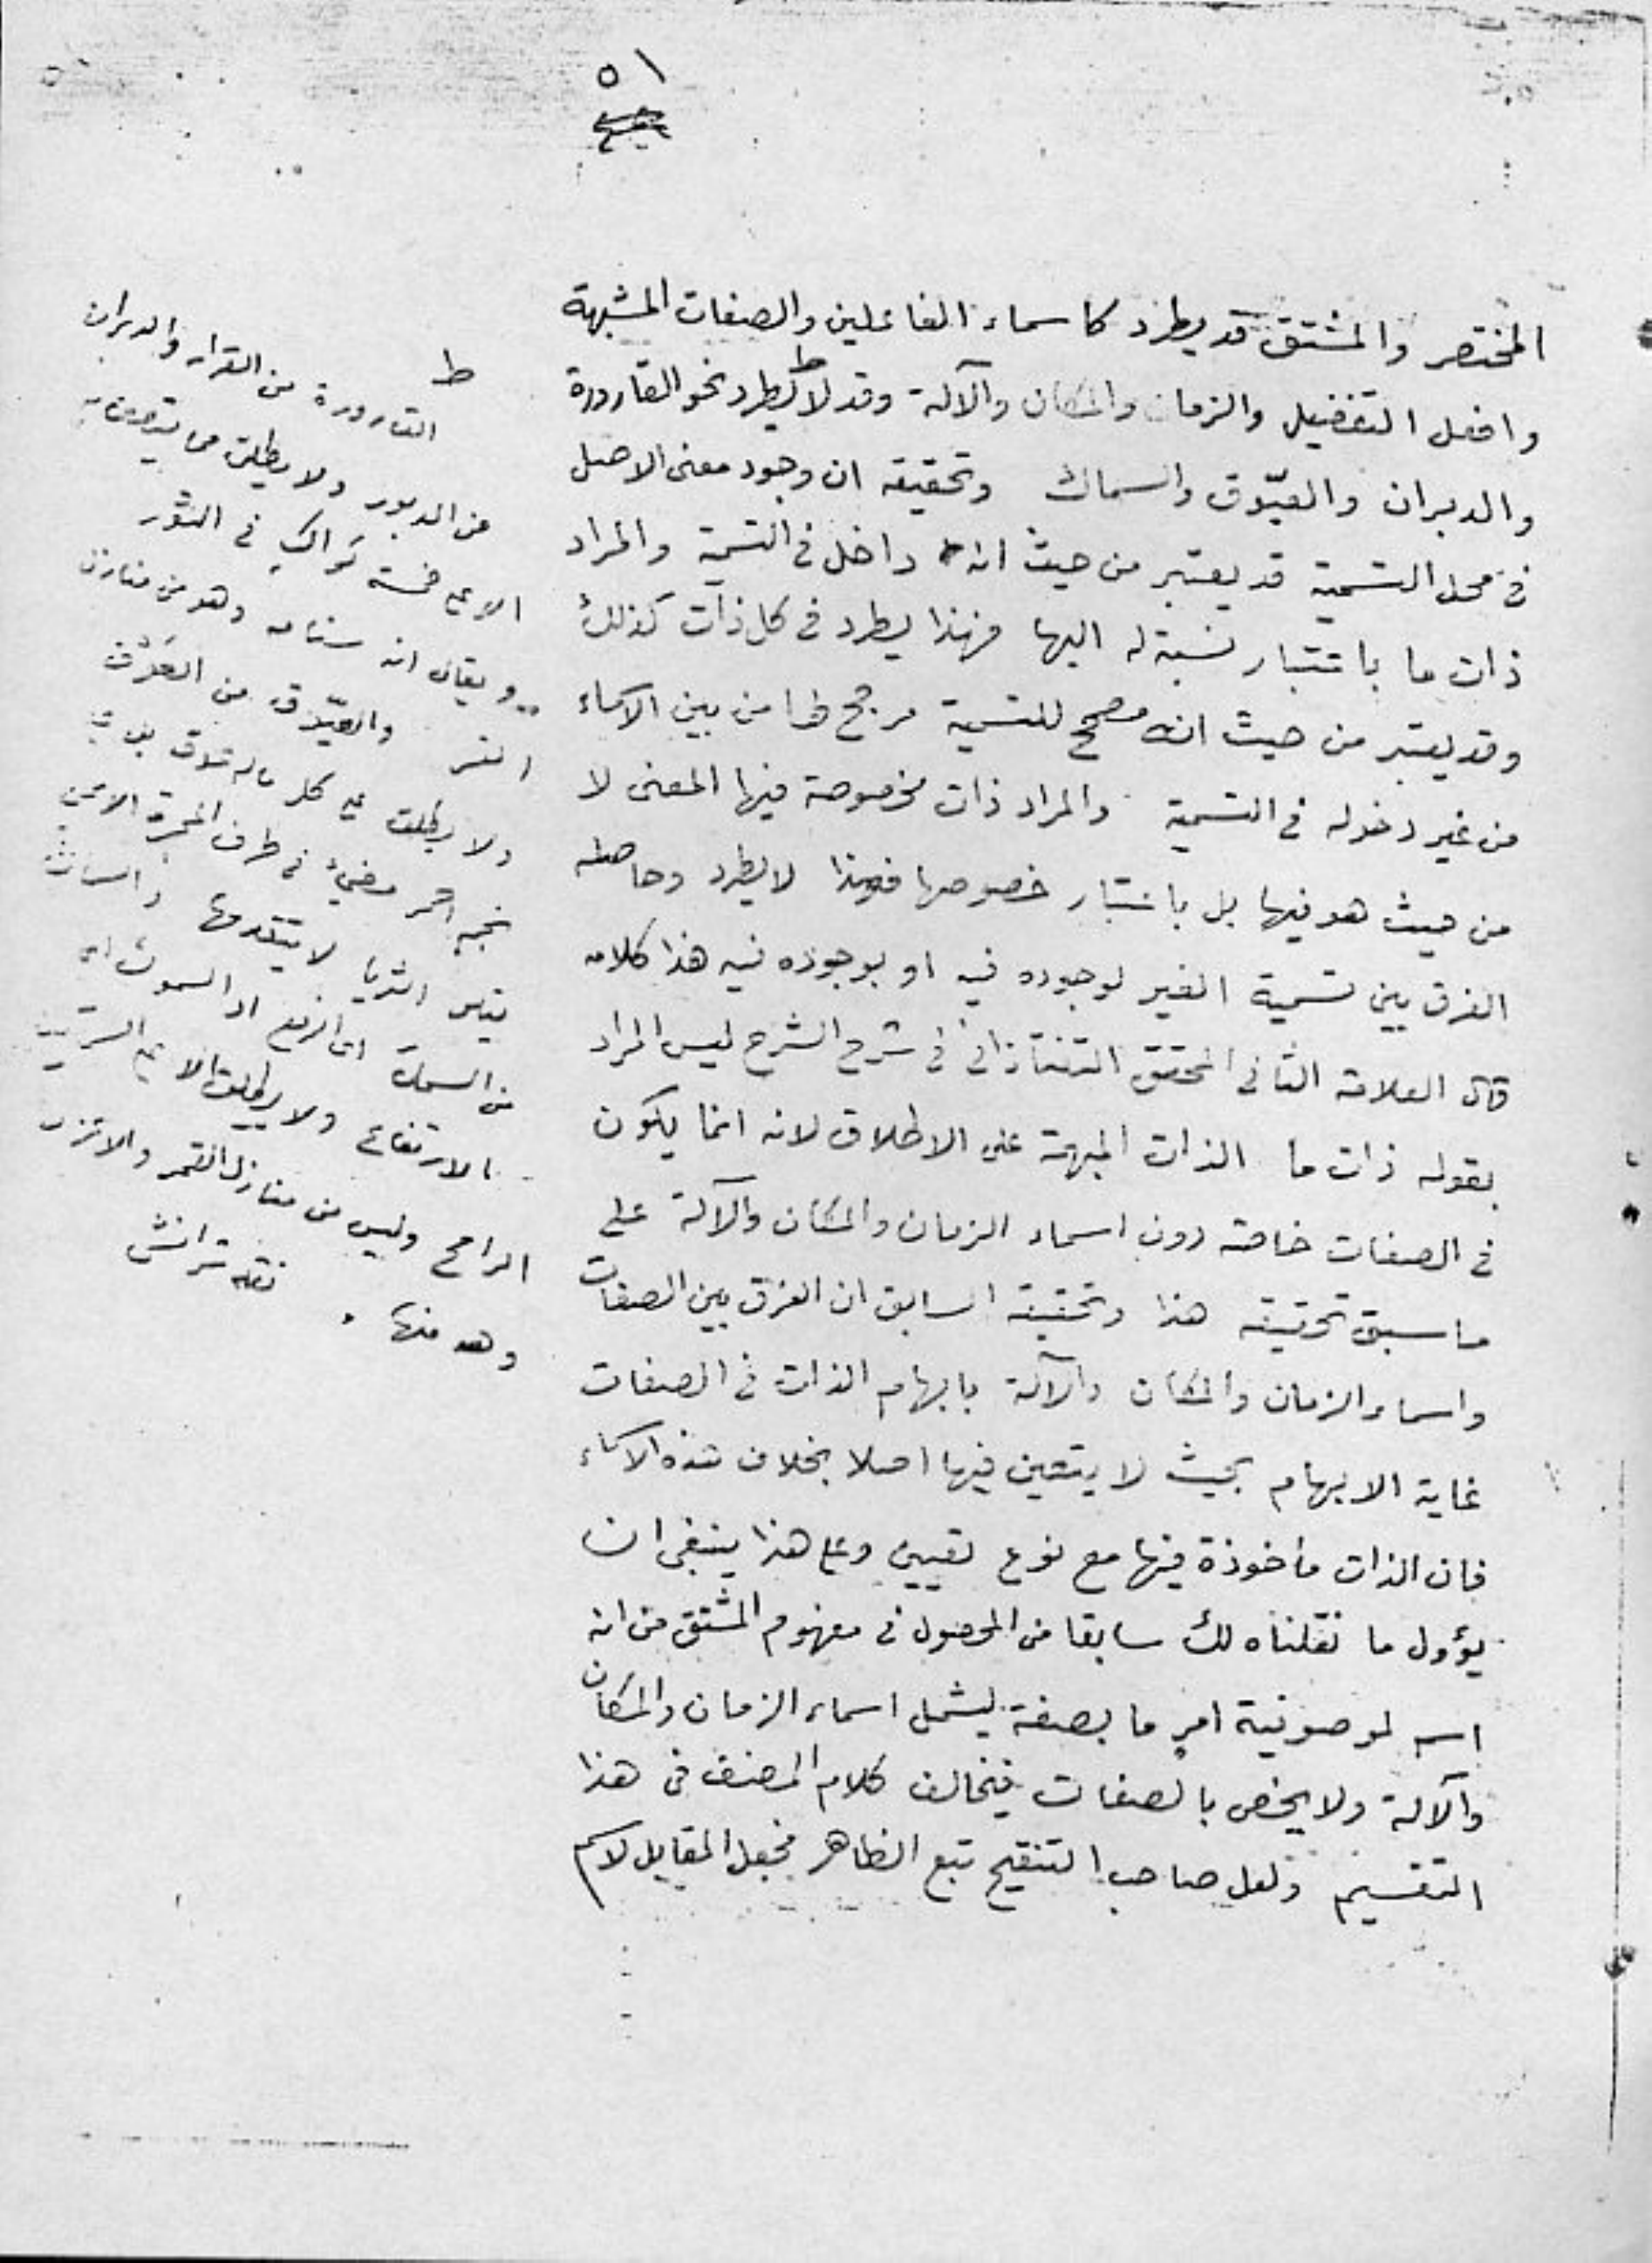 ٥١
المختصر والمشتق قد يطرد كاسماء الفاعلين والصفات المشبهة
وافعل التفضيل والزمان والمكان والآلة وقد لا يطرد نحو القارورة
والدبران والعيّوق والسماك وتحقيقه ان وجود معنى الاصل
في محل التسمية قد يعتبر من حيث انه داخل في التسمية والمراد
ذات ما باعتبار نسبة له اليها فهذا يطرد في كل ذات كذلك
وقد يعتبر من حيث انه مصحح للتسمية مرجح لها من بين الاسماء
من غير دخوله في التسمية والمراد ذات مخصوصة فيها المعنى لا
من حيث هو فيها بل باعتبار خصوصها فهذا لا يطرد وحاصله
الفرق بين تسمية الغير لوجوده فيه او بوجوده فيه هذا كلامه
قال العلامة الثاني المحقق التفتازاني في شرح الشرح ليس المراد
بقوله ذات ما الذات المبهمة على الاطلاق لانه انما يكون
في الصفات خاصة دون اسماء الزمان والمكان والآلة على
ما سبق تحقيقه هذا وتحقيقه السابق ان الفرق بين الصفات
واسماء الزمان والمكان والآلة بابهام الذات في الصفات
غاية الابهام بحيث لا يتعين فيها اصلا بخلاف هذه الاسماء
فان الذات مأخوذة فيها مع نوع تعيين وعلى هذا ينبغي ان
يؤول ما نقلناه لك سابقا من المحصول في مفهوم المشتق من انه
اسم لموصوفية امرٍ ما بصفة ليشمل اسماء الزمان والمكان
والآلة ولا يختص بالصفات فيخالف كلام المصنف في هذا
التقسيم ولعل صاحب التنقيح تبع الظاهر فجعل المقابل لاسم
ط
القارورة من القرار والدبران
من الدبور ولا يطلق
الا على خمسة كواكب في الثور
ويقال انه سنامه وهو من منازل
القمر والعيّوق من العَوْق
ولا يطلق على كل ما له عوق بل على
نجم احمر مضيء في طرف المجرة الايمن
يتلو الثريا لا يتقدمها والسماك
من السمك اى الرفع او السموك اى
الارتفاع ولا يطلق الا على
الرامح وليس من منازل القمر والاعزل
وهو منها .